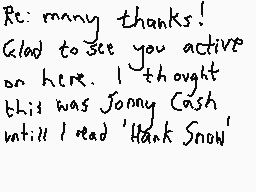 Re: many thanks!
Glad to see you active
on here. I thought
this was Jonny Cash
untill I read 'Hank Snow'